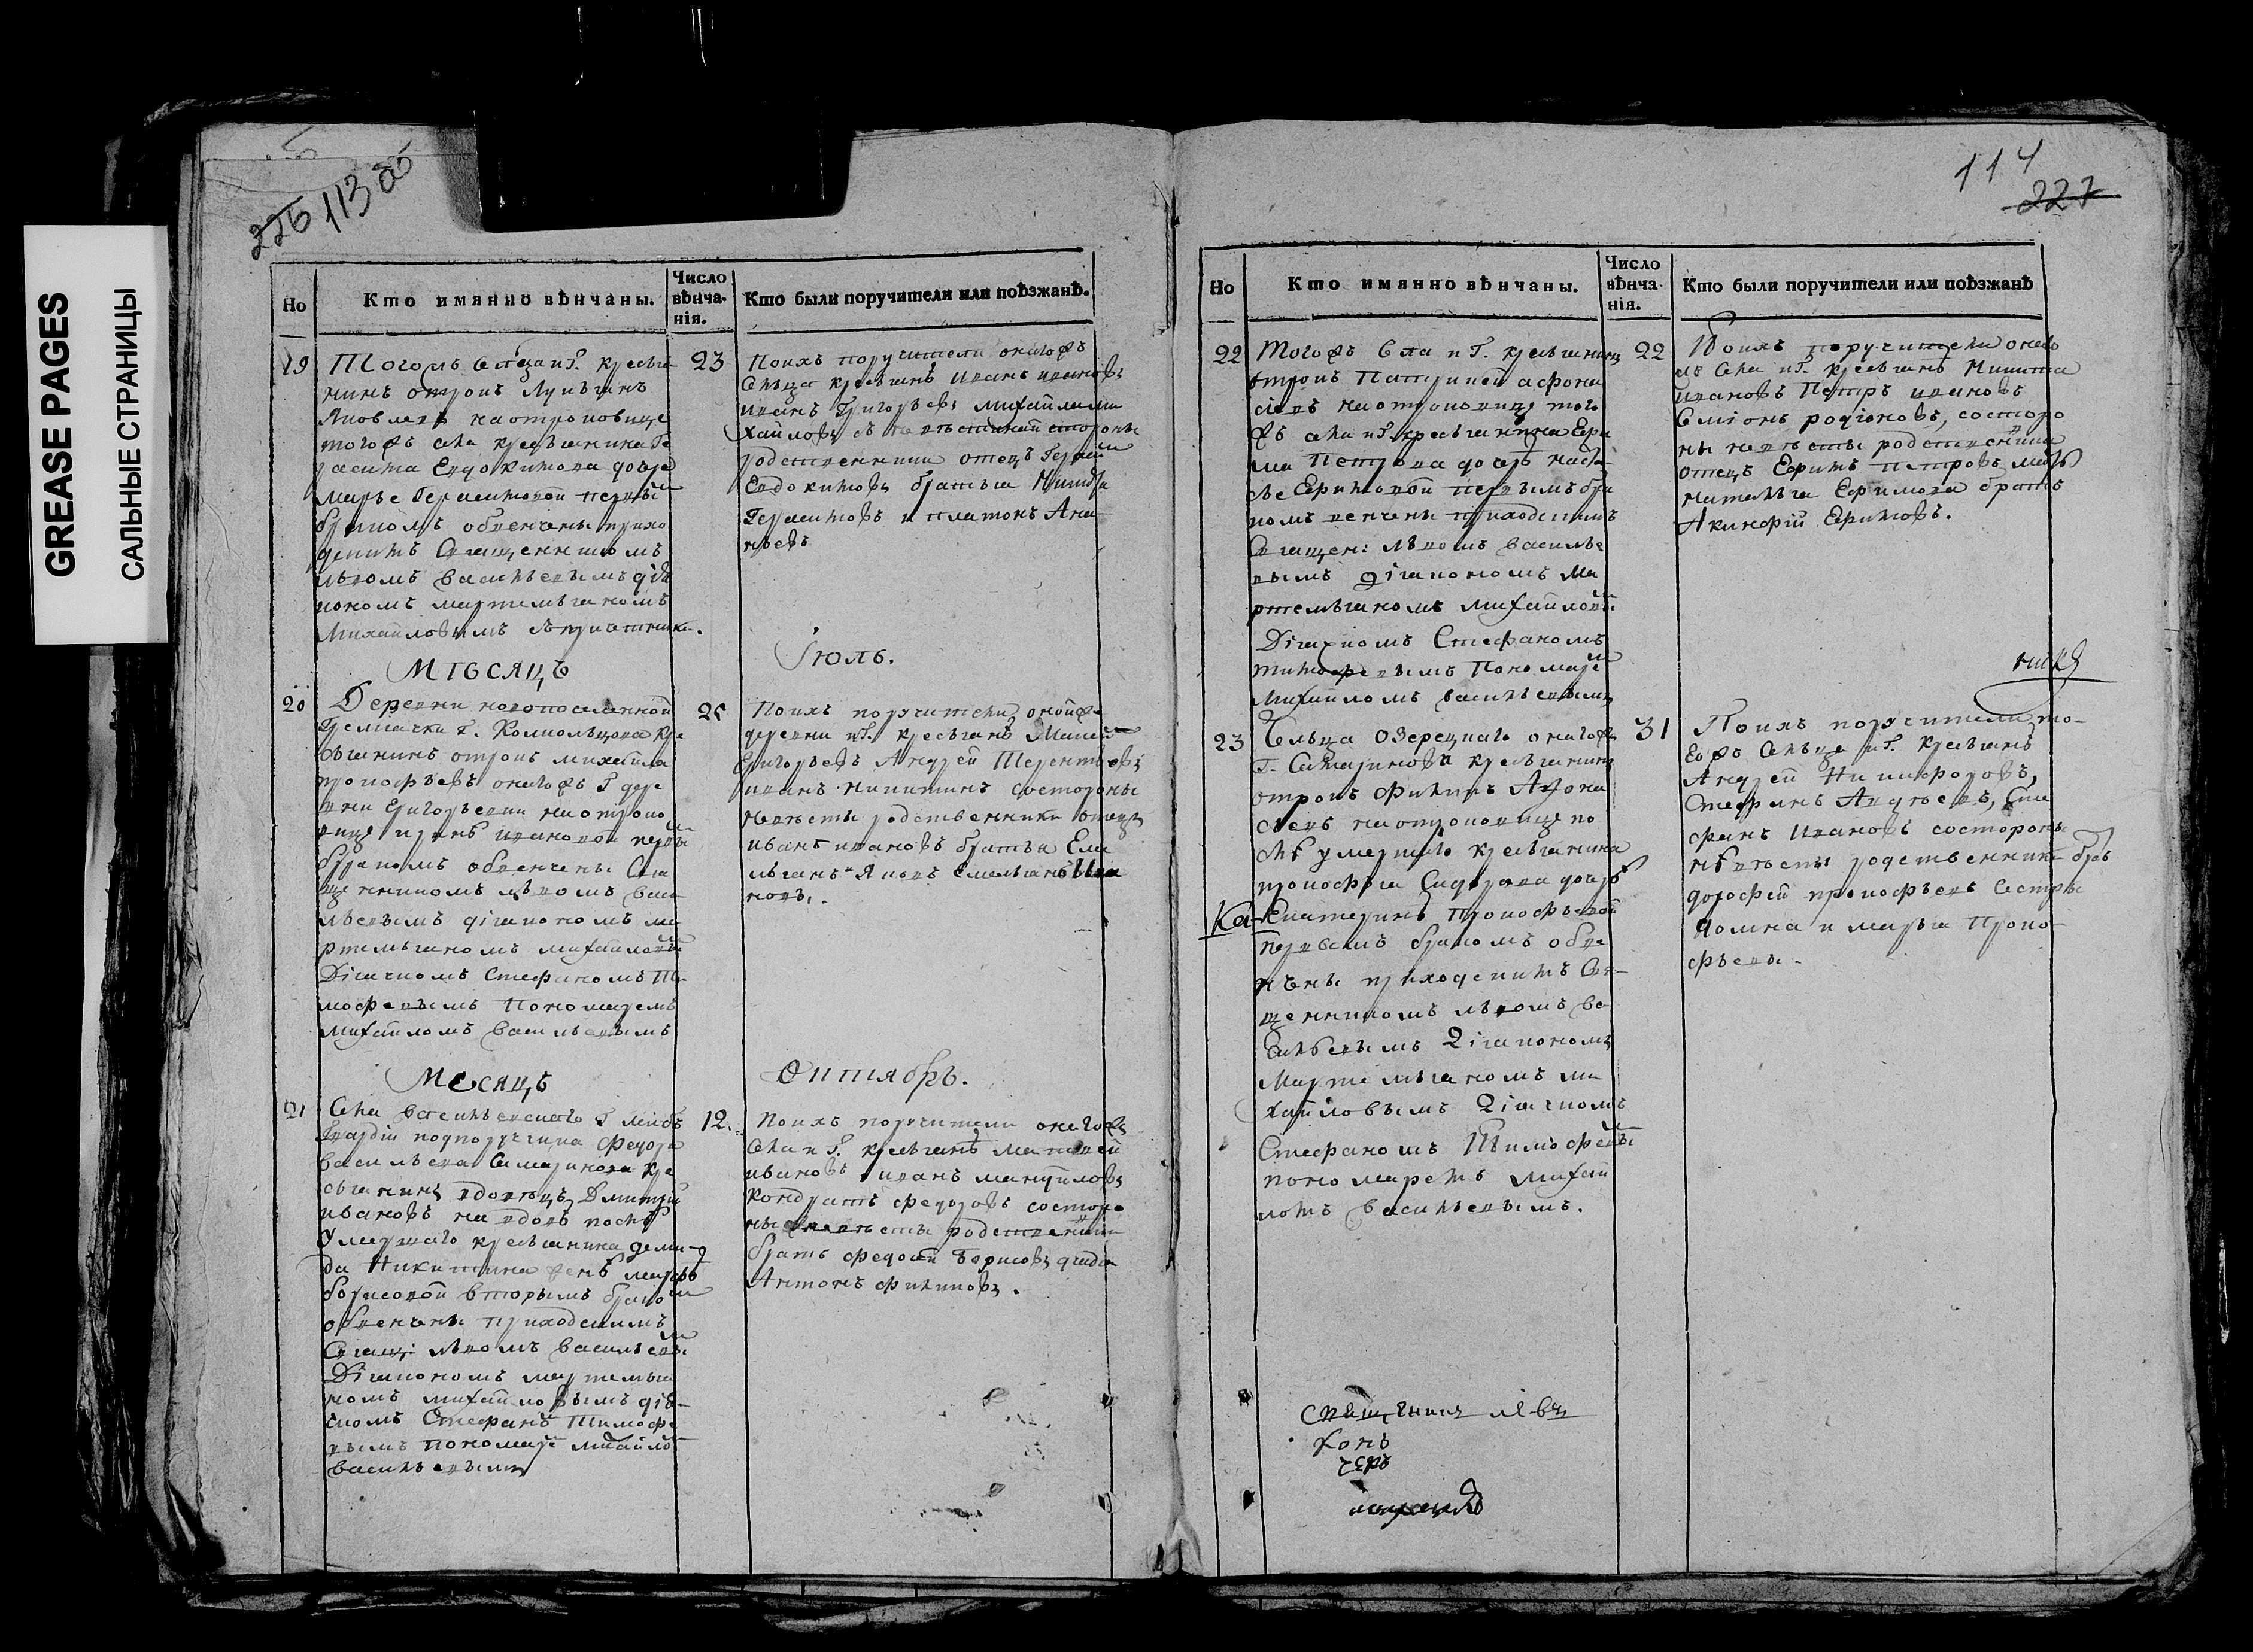 GREASE PAGES
САЛЬНЫЕ СТРАНИЦЫ
226 113 об
Но
Кто имянно вѣнчаны.
Число вѣнча-
нія.
Кто были поручители или поѣзжанѣ.
19
Тогожъ Сельца и Г. крестья
нинъ отрокъ Лукьянъ
Яковлевъ на отроковице
тогожъ села крестьянина Ге
расима Евдокимова дочере
Марье Герасимовой первым
бракомъ обвенчены прихо
Священникомъ
Львомъ Васильевымъ дія
кономъ Мартемьяномъ
Михайловымъ
23
Поихъ поручители оногожъ
Сельца крестьянѣ Иванъ Ивановъ
Иванъ Григорьевъ Михайла Ми
хайловъ съ невестиной стороны
родственники отецъ Герасим
Евдокимовъ братья Никита
Герасимовъ и Платонъ Ана
ньевъ
Мѣсяцъ
Іюль.
20
Деревни новопоселенной
Гремячки Г. Колкольцова кре
стьянинъ отрокъ Михайла
Прокофьевъ оногожъ Г дере
вни Григорьевки на отроко
вице Иринѣ Ивановой первы
бракомъ обвенчены Свя
щенникомъ Львомъ Васи
льевымъ діякономъ Ма
ртемьяномъ Михайловы
Дiячкомъ Стефаномъ Ти
мофевымъ Пономаремъ
Михайломъ Васильевымъ
25
Поихъ поручители онойже
деревни и Г. крестьянѣ
Григорьевъ Андрей Терентьевъ
Иванъ Никитинъ состороны
невесты родственники отецъ
Иванъ Ивановъ братья Еме
льянъ Яковъ Емельянъ Ива
новы.
Месяцъ
Октябрь.
21
Села Васильевскаго Г лейбъ
Гвардіи подпорутчика Федора
Васильева Самаринова кре
стьянинъ вдовецъ Дмитрій
Ивановъ на вдовѣ послѣ
умершаго крестьянина Деми
да Никитина женѣ Марфѣ
Борисовой вторымъ браком
обвенчены приходскимъ
Свящ: Львомъ Васильевы
Дiякономъ Мартемья
номъ Михайловымъ дiя
чкомъ Стефанъ Тимофе
вымъ Пономаре Михайло
Васильевымъ
12.
Поихъ поручители оногожъ
Села и Г. крестьянѣ Матвей
Ивановъ Иванъ Мануйловъ
Кондратъ Федоровъ состоро
ны невесты родственники
братъ Федосей Борисовъ дядя
Антонъ Филиповъ.
114
227
Но
Кто имянно вѣнчаны.
Число вѣнча-
нія.
Кто были поручители или поѣзжанѣ
22
Тогожъ Села и Г. крестьянинъ
отрокъ Патрикей Афона
сіевъ на отроковице того
жъ села и Г. крестьянина Ефи
ма Петрова дочерѣ Наста
сье Ефимовой первымъ бра
комъ венчены приходскимъ
Священ: Львомъ Василье
вымъ дiякономъ Ма
ртемьяномъ Михайловы
Дiячкомъ Стефаномъ
Тимофеевымъ Пономаре
Михайломъ Васильевымъ
22
Поихъ поручители оного
жъ Села и Г. крестьянѣ Никита
Ивановъ Петръ Ивановъ
Симіонъ Родіоновъ, состоро
ны невесты родственники
отецъ Ефимъ Петровъ мать
Наталья Ефимова братъ
Акинфій Ефимовъ.
23
Сельца Озерецкаго оногожъ
Г. Самаринова крестьянинъ
отрокъ Филипъ Афона
сьевъ на отроковице по
слѣ умершаго крестьянина
Прокофья Сидорова дочерѣ
Ка-
Екатеринѣ Прокофьевой
первымъ бракомъ обве
нчены приходскимъ Свя
щенникомъ Львомъ Ва
сильевымъ Дiякономъ
Мартемьяномъ Ми
хайловымъ Дiячкомъ
Стефаномъ Тимофеевы
пономаремъ Михай
ломъ Васильевымъ.
31
Поихъ поручители то-
гожъ Сельца и Г. крестьянѣ
Андрей Никифоровъ,
Стефанъ Андреевъ, Сте
фанъ Ивановъ состороны
невесты родственники братъ
Дорофей Прокофьевъ Сестры
Домна и Марья Проко-
фьевы.
священникъ левъ